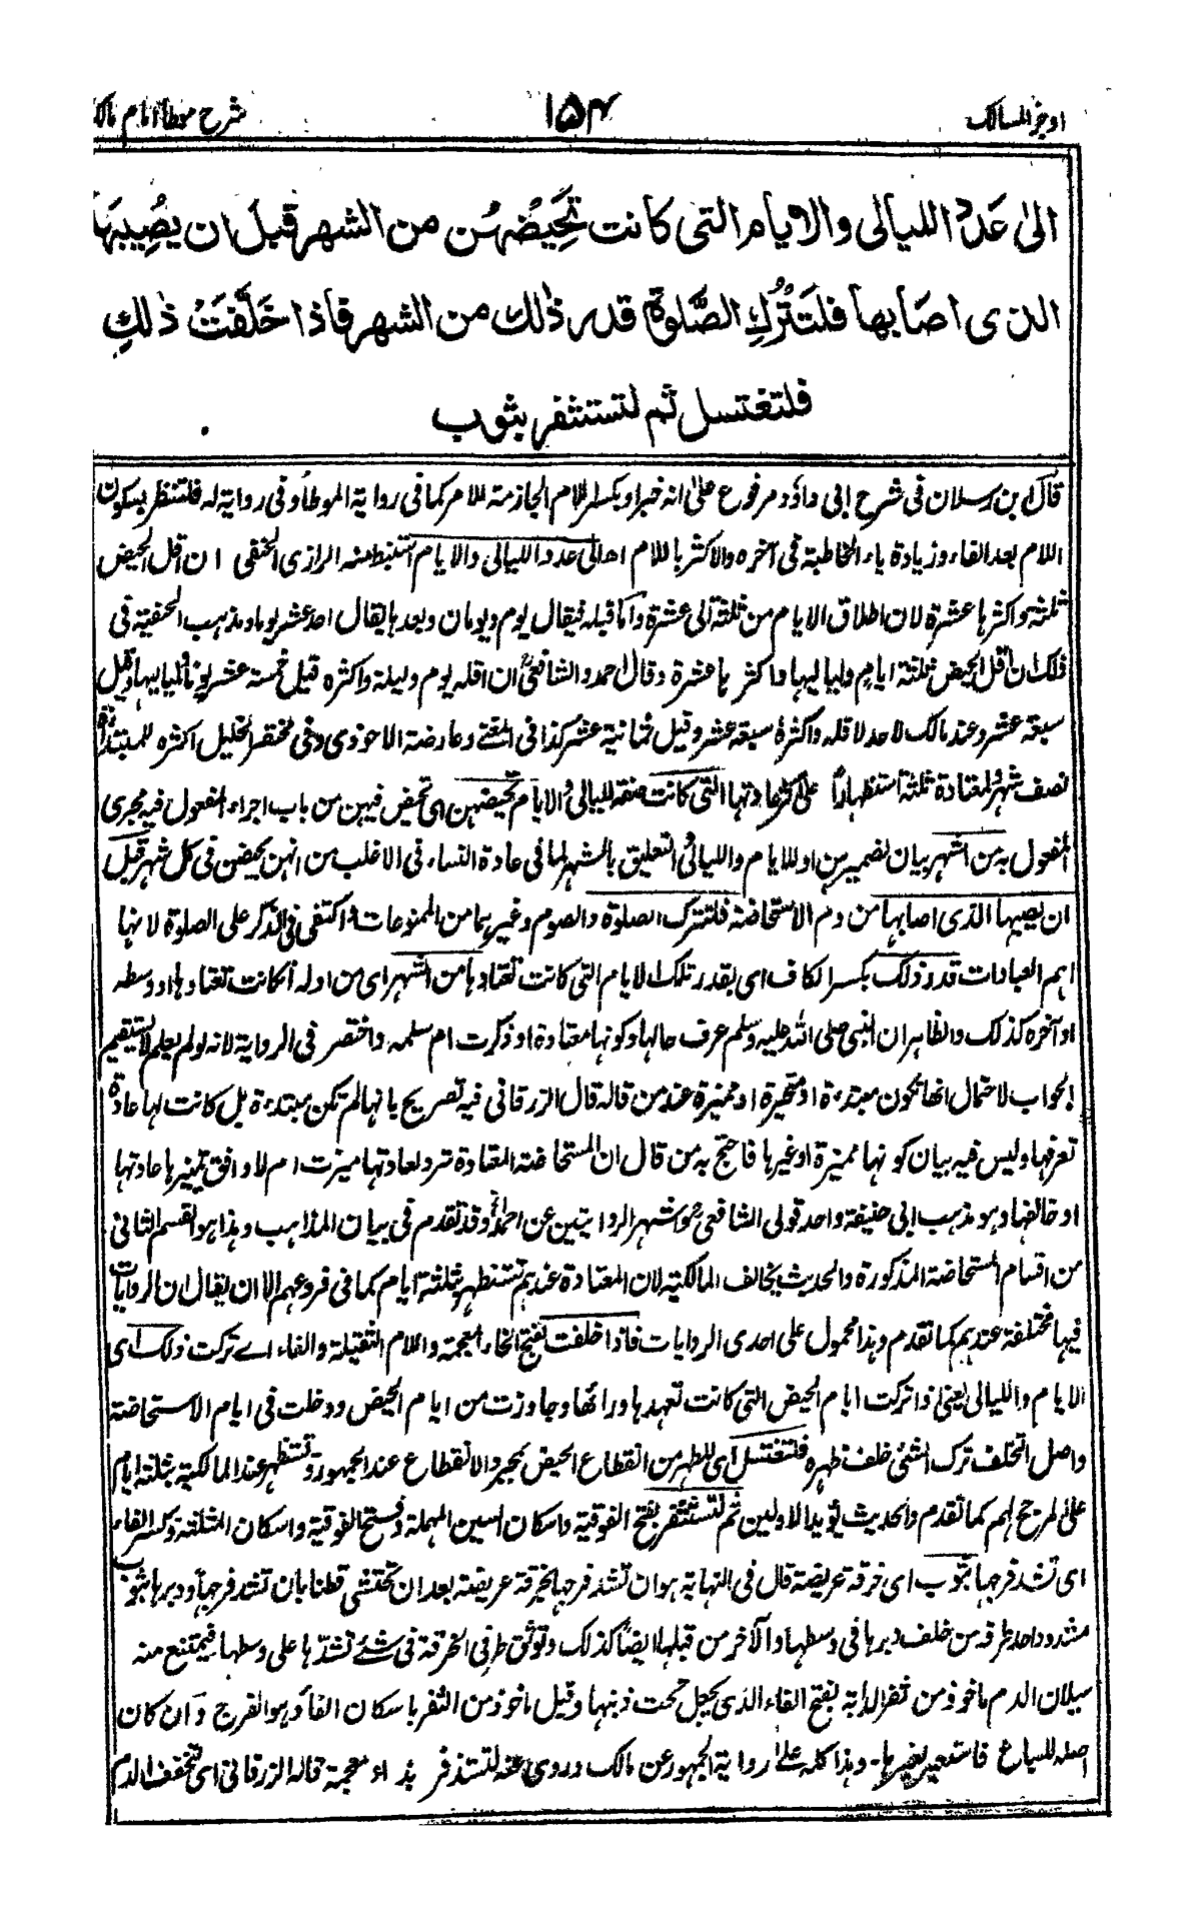 اوجز المسالك ١٥٤ شرح موطا امام مالك
الى عَدَدِ الليالى والايام التى كانت تَحِيضُهُن من الشهر قبل ان يصيبها
الذى اصابها فلتَترُكِ الصَّلوة قدر ذلك من الشهر فاذا خَلَّفَتْ ذلك
فلتغتسل ثم لتستثفر بثوب
قال ابن رسلان فى شرح ابى داؤد مرفوع على انه خبر او بكسر اللام الجازمة للامر كما فى رواية الموطأ وفى رواية له فلتنظر بسكون
اللام بعد الفاء وزيادة ياء المخاطبة فى آخره والاكثر باللام اهـ الى عدد الليالى والايام استنبط منه الرازى الحنفى ان اقل الحيض
ثلثة واكثرها عشرة لان اطلاق الايام من ثلثة الى عشرة واما قبله فيقال يوم ويومان وبعدها يقال احد عشر يوما ومذهب الحنفية فى
ذلك ان اقل الحيض ثلثة ايام ولياليها واكثرها عشرة وقال احمد والشافعى ان اقله يوم وليلة واكثره قيل خمسة عشر يوماً بلياليها وقيل
سبعة عشر وعند مالك لاحد لاقله واكثره سبعة عشر وقيل ثمانية عشر كذا فى المغنى وعارضة الاحوذى وفى مختصر الخليل اكثره للمبتدئة
نصف شهر ولمعتادة ثلثة استظهاراً على اكثر عادتها التى كانت صفة لليالى والايام تحيضهن اى تحيض فيهن من باب اجراء المفعول فيه مجرى
المفعول به من الشهر بيان لضمير هن او للايام والليالى والتعليق بالشهر لما فى عادة النساء فى الاغلب من انهن يحضن فى كل شهر قبل
ان يصيبها الذى اصابها من دم الاستحاضة فلتترك الصلوة والصوم وغيرهما من الممنوعات واكتفى فى الذكر على الصلوة لانها
اهم العبادات قدر ذلك بكسر الكاف اى بقدر تلك الايام التى كانت تعتادها من الشهر اى من اوله ان كانت تعتادها او وسطه
او آخره كذلك والظاهر ان النبى صلى الله عليه وسلم عرف حالها وكونها معتادة او ذكرت ام سلمه واختصر فى الرواية لانه لو لم يعلم لا يستقيم
الجواب لاحتمال انها تكون مبتدءة او متحيرة او مميزة عند من قاله قال الزرقانى فيه تصريح بانها لم تكن مبتدءة بل كانت لها عادة
تعرفها وليس فيه بيان كونها مميزة او غيرها فاحتج به من قال ان المستحاضة المعتادة ترد لعادتها ميزت ام لا وافق تمييزها عادتها
او خالفها وهو مذهب ابى حنيفة واحد قولى الشافعى واشهر الروايتين عن احمد وقد تقدم فى بيان المذاهب وهذا هو القسم الثانى
من اقسام المستحاضة المذكورة والحديث يخالف المالكية لان المعتادة عندهم تستظهر بثلثة ايام كما فى فروعهم الا ان يقال ان الروايات
فيها مختلفة عندهم كما تقدم وهذا محمول على احدى الروايات فاذا خلفت بفتح الخاء المعجمة واللام الثقيلة والفاء اے تركت ذلك اى
الايام والليالى يعنى اذا تركت ايام الحيض التى كانت تعهدها وراءها وجاوزت من ايام الحيض ودخلت فى ايام الاستحاضة
واصل التخلف ترك الشئ خلف ظهره فلتغتسل اى للطهر من انقطاع الحيض بمجرد الانقطاع عند الجمهور وتستظهر عند المالكية بثلثة ايام
على المرجح لهم كما تقدم والحديث يؤيد الاولين ثم لتستثفر بفتح الفوقية واسكان السين المهملة وفتح الفوقية واسكان المثلثة وكسر الفاء
اى تشد فرجها بثوب اى خرقة عريضة قال فى النهاية هو ان تشد فرجها بخرقة عريضة بعد ان تحتشى قطنا بان تشد فرجها ودبرها بثوب
مشدود احد طرفيه من خلف دبرها فى وسطها والآخر من قبلها ايضاً كذلك وتوثق طرفى الخرقة فى شئ تشدها على وسطها فيمتنع منه
سيلان الدم ماخوذ من ثفر الدابة بفتح الفاء الذى يجعل تحت ذنبها وقيل ماخوذ من الثفر باسكان الفاء وهو الفرج وان كان
اصله للسباع فاستعير لغيرها۔ وهذا كله على رواية الجمهور عن مالك وروى عنه لتستذفر بذاء معجمة قاله الزرقانى اى تخفف الدم